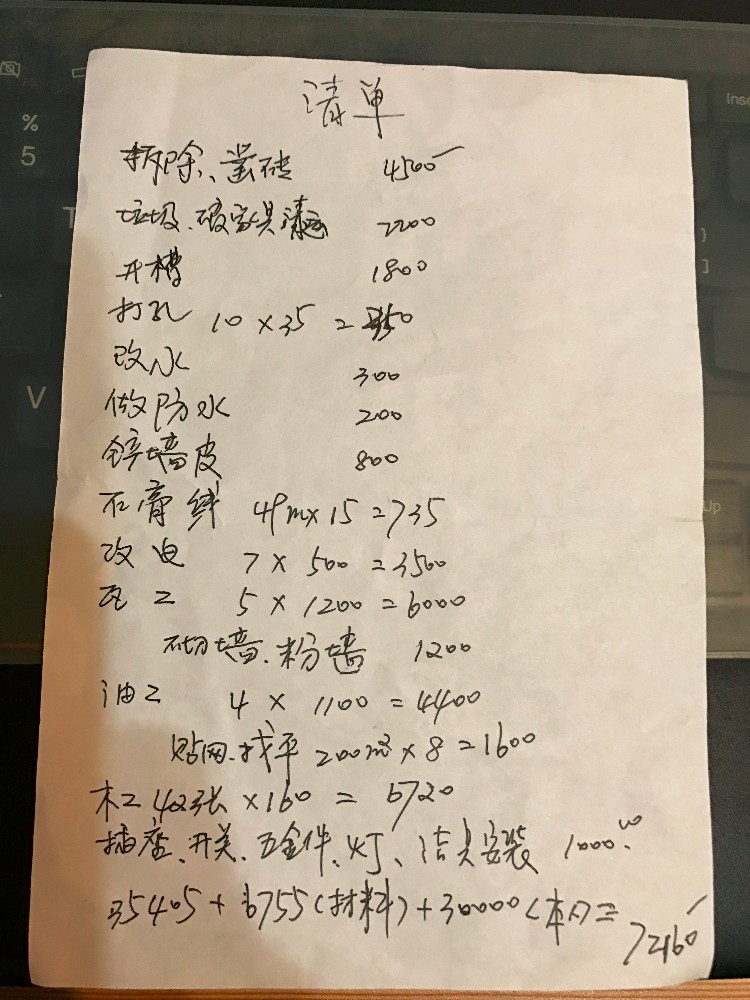 清单
拆除、凿砖 4500
垃圾、破家具清运 2200
开槽 1800
打孔 10×35=350
改水 300
做防水 200
铲墙皮 800
石膏线 49m×15=735
改电 7×500=3500
瓦工 5×1200=6000
砌墙、粉墙 1200
油工 4×1100=4400
贴网、找平 200m²×8=1600
木工 42张×160=6720
插座、开关、五金件、灯、洁具安装 1000.00
35405+6755(材料)+30000(本人)=
72160
%
5
V
Inse
}
]
Up